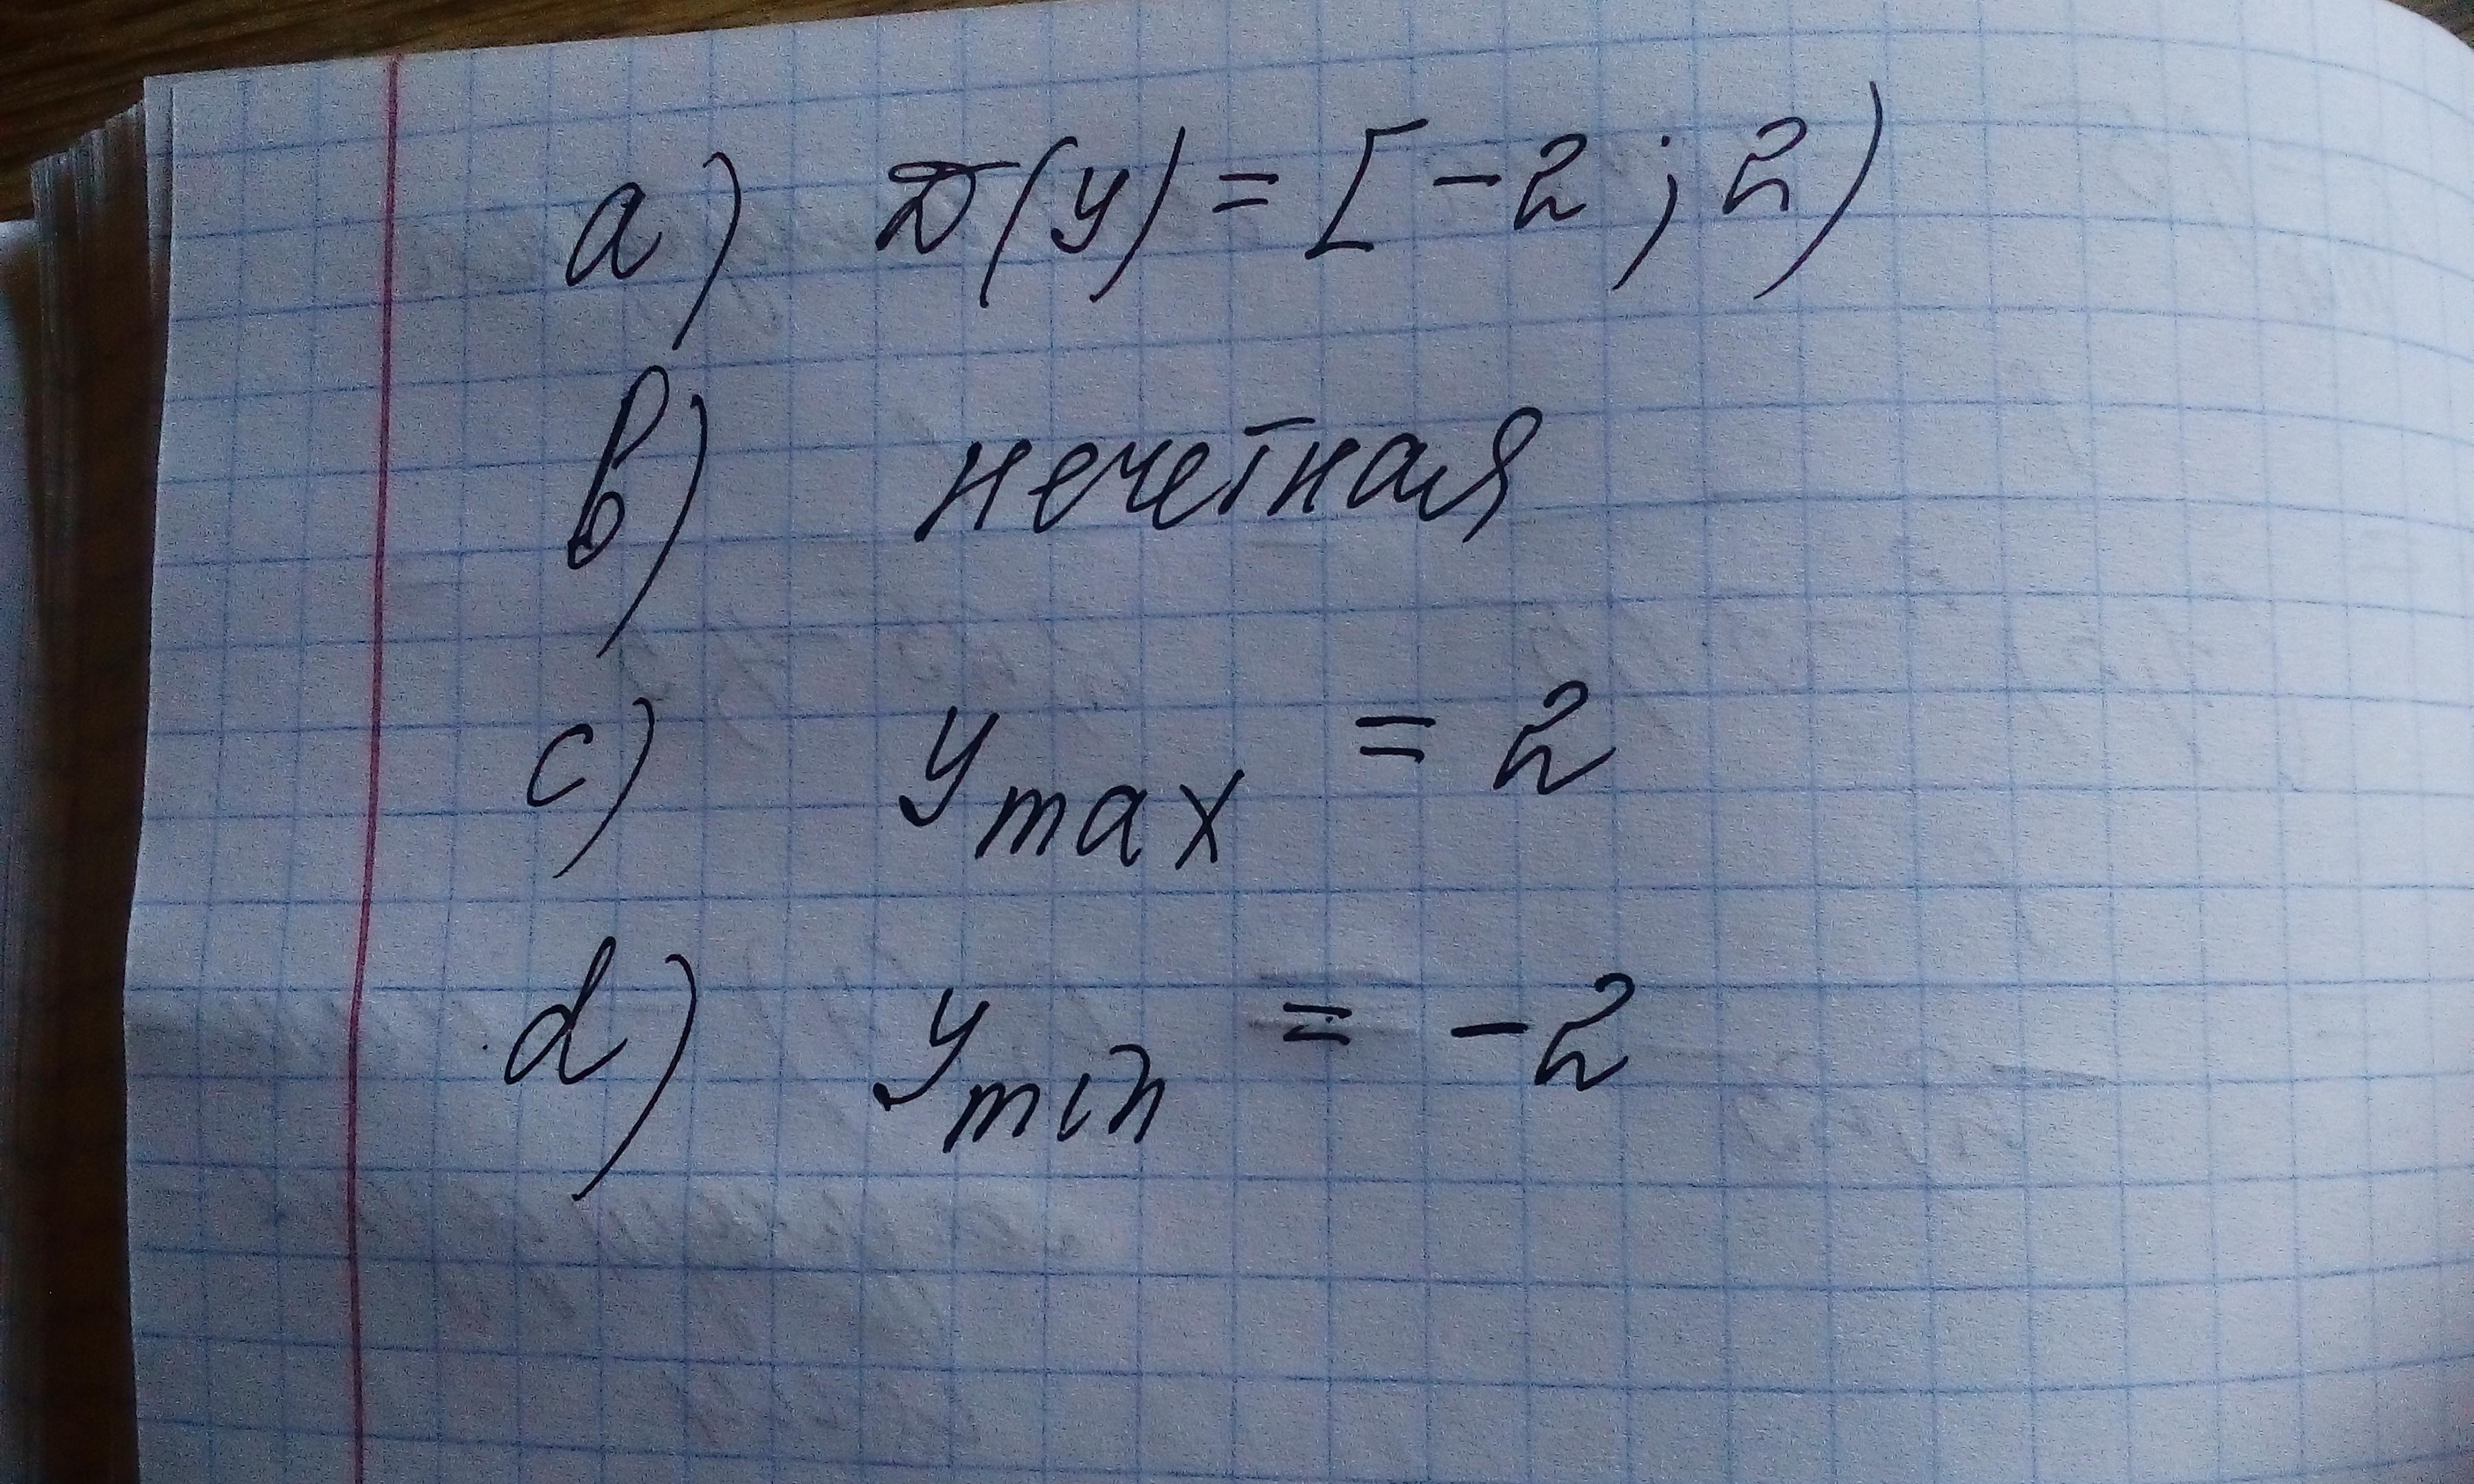 a) D(y) = [-2; 2)
b) нечетная
c) y max = 2
d) y min = -2